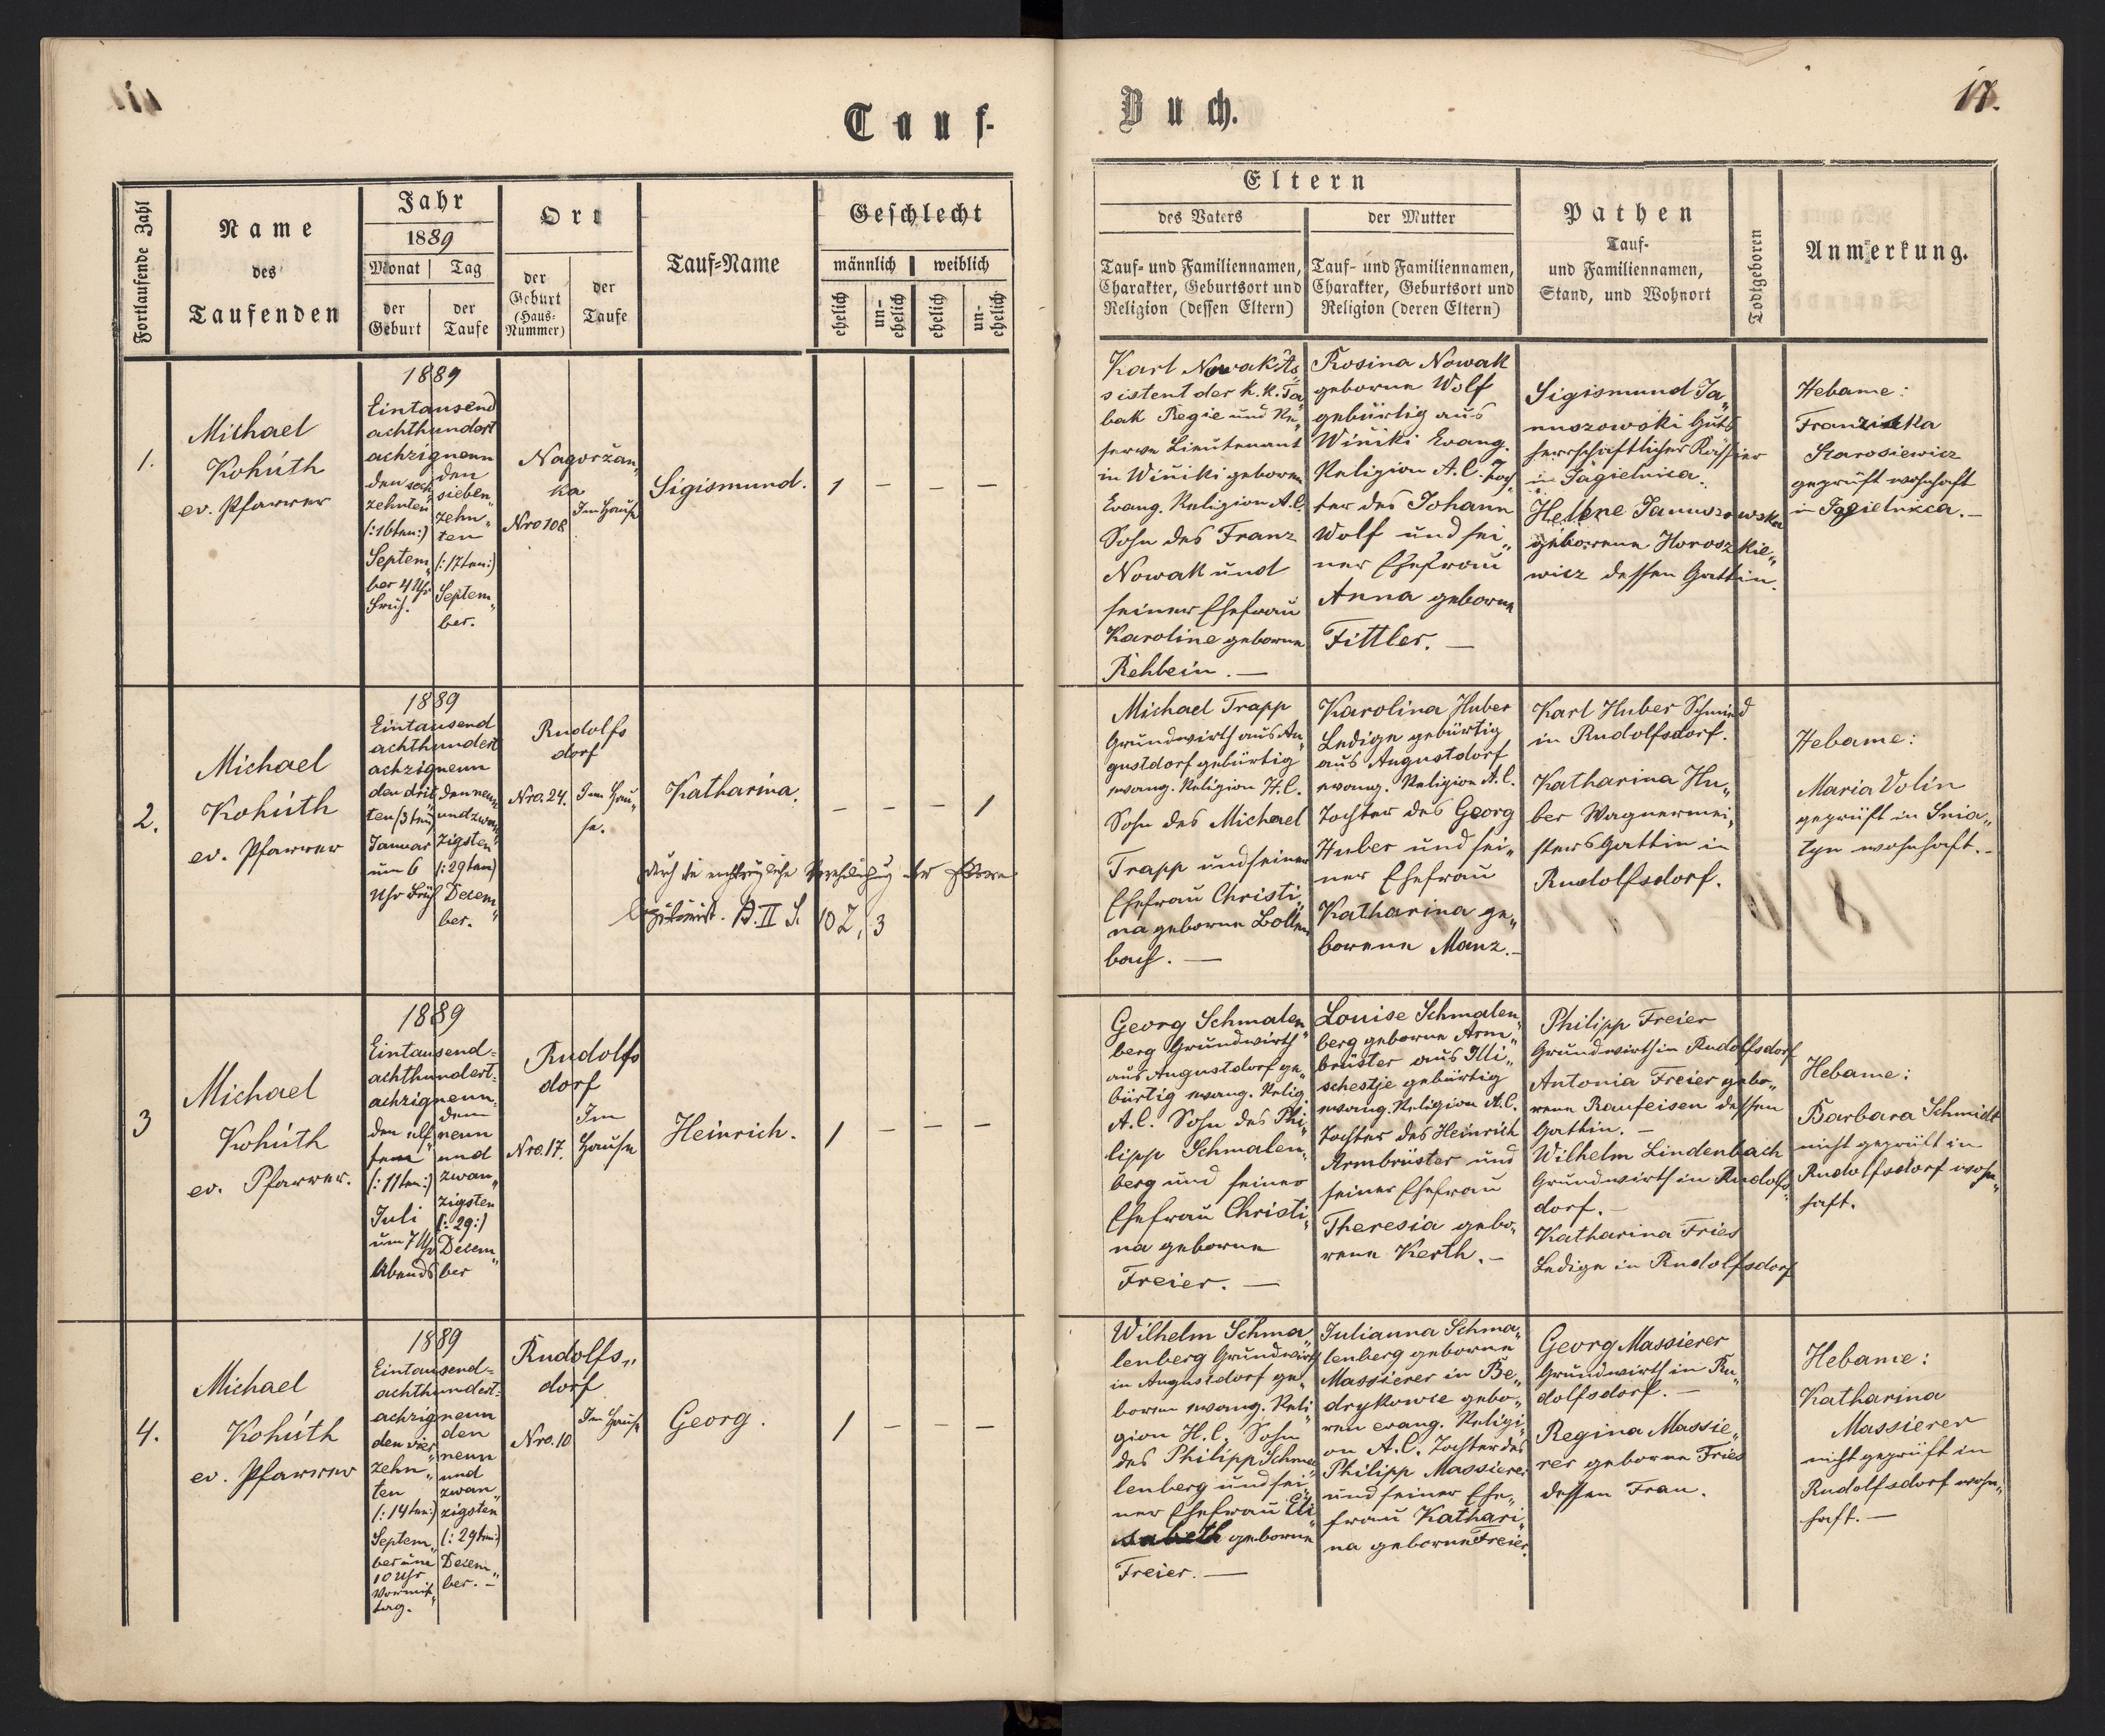 Tauf-
Buch.
17.
Fortlaufende Zahl
Name
des
Taufenden
Jahr
1889
Monat
Tag
der
Geburt
der
Taufe
Ort
der
Geburt
(Haus-
Nummer)
der
Taufe
Tauf-Name
Geschlecht
männlich
weiblich
ehelich
un-
ehelich
ehelich
un-
ehelich
Eltern
des Vaters
der Mutter
Tauf- und Familiennamen,
Charakter, Geburtsort und
Religion (dessen Eltern)
Tauf- und Familiennamen,
Charakter, Geburtsort und
Religion (deren Eltern)
Pathen
Tauf-
und Familiennamen,
Stand, und Wohnort
Todtgeboren
Anmerkung.
1.
Michael
Kohúth
ev. Pfarrer
1889
Eintausend
achthundert
achzigneun
den sech„
zehnten
(:16ten:)
Septem„
ber 4 Uhr
Früh.
den
sieben„
zehn„
ten
(:17ten:)
Septem„
ber.
Nagorzan„
ka
Nro 108
Im Hause
Sigismund.
1 – – –
Karl Nowak As„
sistent der k. k. Ta„
bak Regie und Re„
serve Lieutenant
in Winiki geboren
Evang. Religion A. C.
Sohn des Franz
Nowak und
seiner Ehefrau
Karoline geborne
Rehbein. —
Rosina Nowak
geborne Wolf
gebürtig aus
Winiki Evang.
Religion A. C. Toch„
ter des Johann
Wolf und sei„
ner Ehefrau
Anna geborne
Fittler. —
Sigismund Ja„
nuszowski Guts
herrschaftlicher Kassier
in Jagielnica.
Helene Januszowska
geborene Horoszkie„
wicz dessen Gattin.
Hebame:
Franziska
Starosiewicz
geprüft wohnhaft
in Jagielnica. —
2.
Michael
Kohúth
ev. Pfarrer
1889
Eintausend
achthundert
achzigneun
den drit„
ten (3ten)
Januar
um 6
Uhr Früh
den neun
und zwan„
zigsten
(:29ten)
Decem„
ber.
Rudolfs
dorf
Nro. 24.
Im Hau„
se.
Katharina.
– – – 1
durch die nachträgliche Verehelichung der Eltern
legitimirt. B. II S. 102, 3
Michael Trapp
Grundwirth aus Au„
gustdorf gebürtig
evang. Religion H. C.
Sohn des Michael
Trapp und seiner
Ehefrau Christi„
na geborne Bollen
bach. —
Karolina Huber
Ledige gebürtig
aus Augustdorf
evang. Religion A. C.
Tochter des Georg
Huber und sei„
ner Ehefrau
Katharina ge„
borene Manz. –
Karl Huber Schmied
in Rudolfsdorf.
Katharina Hu„
ber Wagnermei„
sters Gattin in
Rudolfsdorf.
Hebame:
Maria Volin
geprüft in Snia„
tyn wohnhaft. –
3
Michael
Kohúth
ev. Pfarrer.
1889
Eintausend-
achthundert-
achzigneun.
den elf„
ten
(:11ten:)
Juli
um 7 Uhr
Abends
dem
neun
und
zwan„
zigsten
(:29:)
Decem„
ber
Rudolfs
dorf
Nro. 17.
Im
Hause
Heinrich.
1 – – –
Georg Schmalen„
berg Grundwirth
aus Augustdorf ge„
bürtig evang. Relig.
A. C. Sohn des Phi„
lipp Schmalen„
berg und seiner
Ehefrau Christi„
na geborne
Freier. —
Louise Schmalen„
berg geborne Arm„
brüster aus Illi„
schestje gebürtig
evang. Religion A. C.
Tochter des Heinrich
Armbrüster und
seiner Ehefrau
Theresia gebo„
rene Kerth. –
Philipp Freier
Grundwirth in Rudolfsdorf
Antonia Freier gebo„
rene Raufeisen dessen
Gattin. –
Wilhelm Lindenbach
Grundwirth in Rudolfs„
dorf. –
Katharina Fries
Ledige in Rudolfsdorf
Hebame:
Barbara Schmidt
nicht geprüft in
Rudolfsdorf wohn„
haft.
4.
Michael
Kohúth
ev. Pfarrer
1889
Eintausend-
achthundert-
achzigneun
den vier„
zehn„
ten
(:14ten:)
Septem„
ber um
10 Uhr
Vormit„
tag.
den
neun
und
zwan„
zigsten
(:29ten:)
Decem„
ber. –
Rudolfs„
dorf
Nro. 10
Im Hause
Georg.
1 – – –
Wilhelm Schma„
lenberg Grundwirth
in Augustdorf ge„
boren evang. Reli„
gion H. C. Sohn
des Philipp Schma„
lenberg und sei„
ner Ehefrau Eli„
sabeth geborne
Freier. —
Julianna Schma„
lenberg geborne
Massierer in Be„
drykowce gebo„
ren evang. Religi„
on A. C. Tochter des
Philipp Massierer
und seiner Ehe„
frau Kathari„
na geborne Freier.
Georg Massierer
Grundwirth in Ru„
dolfsdorf. –
Regina Massie„
rer geborne Fries
dessen Frau.
Hebame:
Katharina
Massierer
nicht geprüft in
Rudolfsdorf wohn„
haft. –